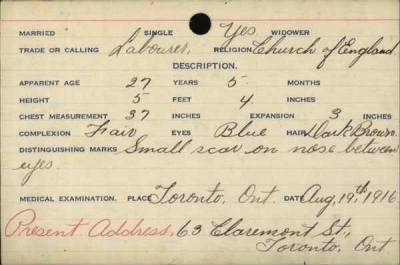 MARRIED SINGLE Yes WIDOWER
TRADE OR CALLING Labourer, RELIGION Church of England
DESCRIPTION.
APPARENT AGE 27 YEARS 5 MONTHS
HEIGHT 5 FEET 4 INCHES
CHEST MEASUREMENT 37 INCHES EXPANSION 3 INCHES
COMPLEXION Fair EYES Blue HAIR Dark Brown
DISTINGUISHING MARKS Small scar on nose between
eyes.
MEDICAL EXAMINATION. PLACE Toronto, Ont. DATE Aug, 19th, 1916
Present Address, 63 Claremont St,
Toronto, Ont